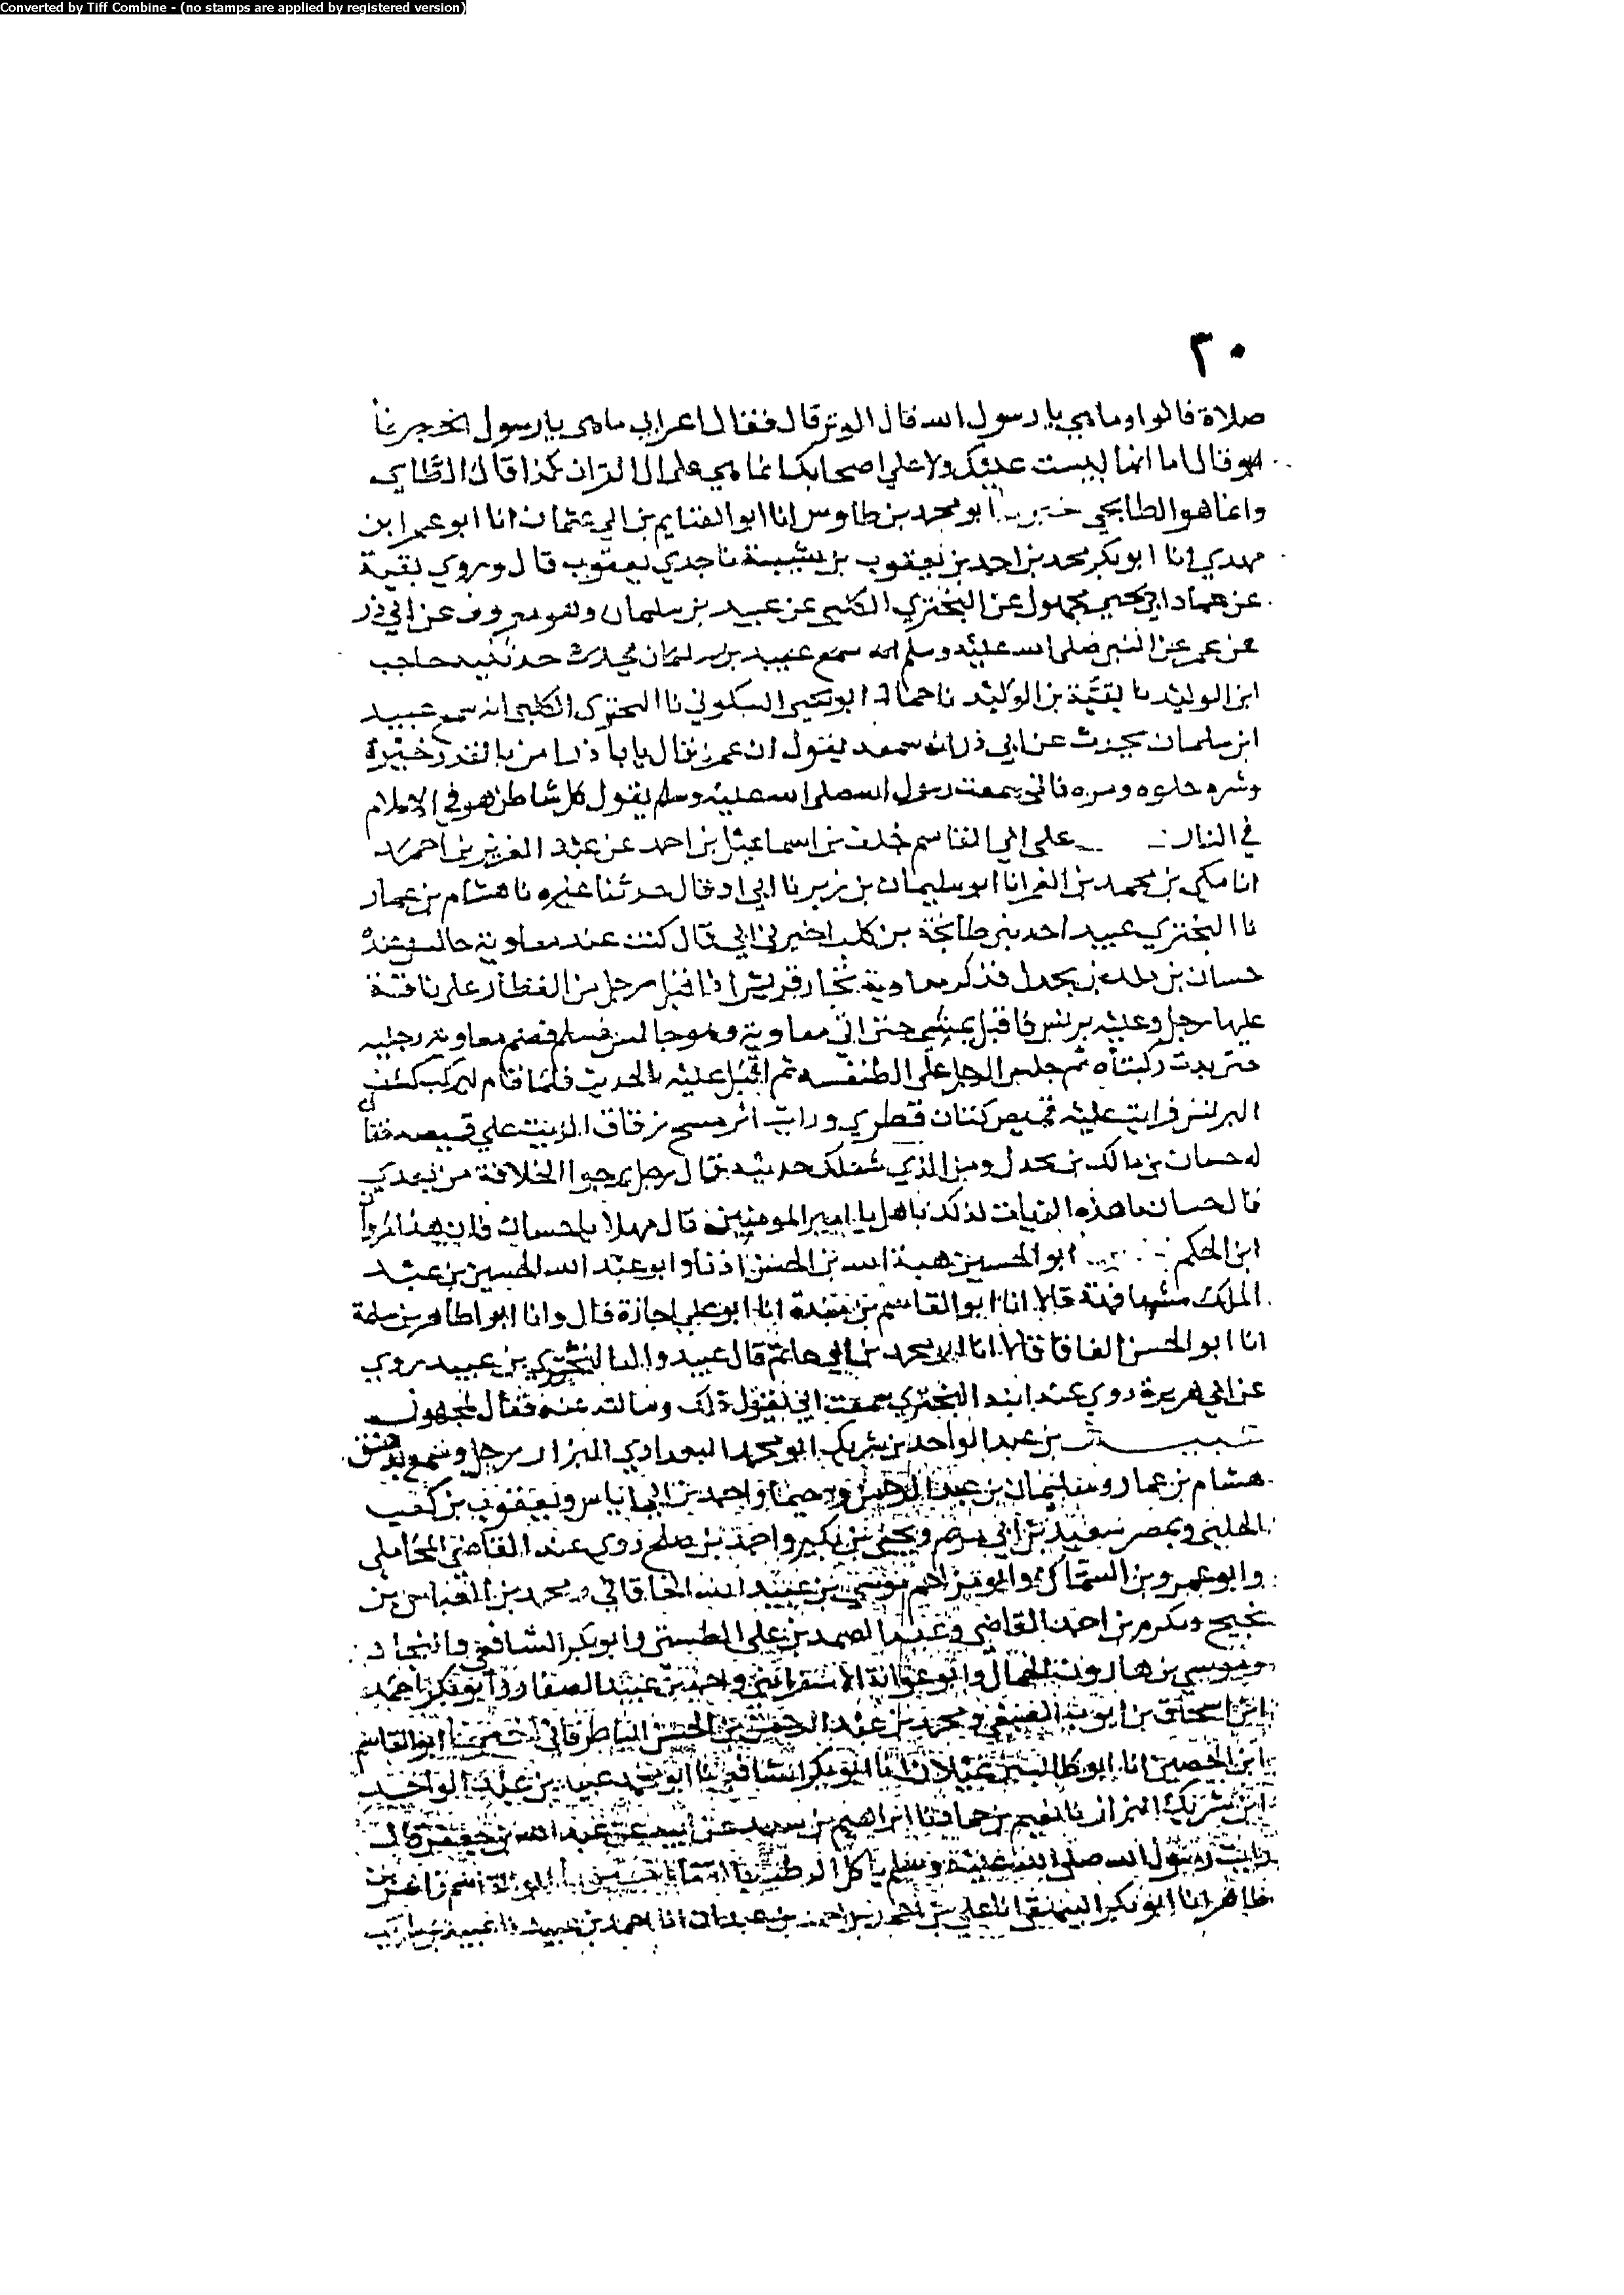 Converted by Tiff Combine - (no stamps are applied by registered version)
٣٠
صلاة قالوا وما هي يا رسول الله قال الوتر قال فقال اعرابي ما هي يا رسول الله
هو قال اما انها ليست عليك ولا على اصحابك انما هي على اهل القران كذا قال الطاي
وانما هو الطابخي ابو محمد بن طاوس انا ابو الغنايم بن ابي عثمان انا ابو عمر ابن
مهدي انا ابو بكر محمد بن احمد بن يعقوب بن شيبة نا جدي يعقوب قال وروي بقية
عن حماد ابي يحيى مجهول عن البختري الكلبي عن عبيد بن سلمان وهو معروف عن ابي ذر
عن عمر عن النبي صلى الله عليه وسلم انه سمع عبيد بن سلمان يحدث حدثنيه حاجب
ابن الوليد نا بقية بن الوليد نا حماد ابو يحيى السكوني نا البختري الكلبي انه سمع عبيد
ابن سلمان يحدث عن ابي ذر انه سمعه يقول ان عمر قال يابا ذر امن بالقدر خيره
وشره حلوه ومره فاني سمعت رسول الله صلى الله عليه وسلم يقول كل شاطن هو في الاسلام
في النار على ابي القاسم خلف بن اسماعيل بن احمد عن عبد العزيز بن احمد
انا مكي بن محمد بن الغمر انا ابو سليمان بن زبر نا ابي قال حدثنا غيره نا هشام بن عمار
نا البختري عبيد احد بني طابخة من كلب اخبرني ابي قال كنت عند معاوية جالسا وعنده
حسان بن مالك بن بحدل فذكر معاوية تجار قريش اذ اقبل رجل من الفظار على ناقة
عليها رحل وعليه برنس فاقبل يمشي حتى اتى معاوية وهو جالس فسلم فضم معاوية رجليه
حتى بدت ركبتاه ثم جلس الرجل على الطنفسه ثم اقبل عليه بالحديث فلما قام ليركب كشف
البرنس فرايت عليه قميص كتان قطري ورايت اثر مسح زقاق الزيت على قميصه فقال
له حسان بن مالك بن بحدل ومن الذي شغلك حديثه قال رجل يرجوا الخلافة من بعدي
قال حسان ما هذه الفيات لذلك باهل يا امير المومنين قال مهلا يا حسان فان هذا مروان
ابن الحكم ابو الحسين هبة الله بن الحسن اذنا وابو عبد الله الحسين بن عبد
الملك مشافهة قالا انا ابو القاسم بن مندة انا ابو علي اجازة قال وانا ابو طاهر بن سلمة
انا ابو الحسن الفافا قالا انا ابو محمد بن ابي حاتم قال عبيد والد البختري بن عبيد يروي
عن ابي هريرة روي عنه ابنه البختري سمعت ابي يقول ذلك وسالته عنه فقال مجهول
عبيد بن عبد الواحد بن شريك ابو محمد البغدادي البزار رحل وسمع بدمشق
هشام بن عمار وسليمان بن عبد الرحمن ودحيما واحمد بن ابي اياس ويعقوب بن كعب
الحلبي وبمصر سعيد بن ابي مريم ويحيى بن بكير واحمد بن صالح روي عنه القاضي المحاملي
وابو عمرو بن السماك وابو مزاحم موسى بن عبيد الله الخاقاني ومحمد بن العباس بن
نجيح ومكرم بن احمد القاضي وعبد الصمد بن علي الطستي وابو بكر الشافعي والنجاد
وموسى بن هارون الحمال وابو عوانة الاسفرايني واحمد بن عبيد الصفار وابو بكر احمد
ابن اسحاق بن ايوب الصبغي ومحمد بن عبد الرحمن بن الحسن الباطرقاني اخبرنا ابو القاسم
ابن الحصين انا ابو طالب بن غيلان انا ابو بكر الشافعي نا ابو محمد عبيد بن عبد الواحد
ابن شريك البزار نا نعيم بن حماد نا ابراهيم بن سعد عن ابيه عن عبد الله بن جعفر قال
رايت رسول الله صلى الله عليه وسلم ياكل الرطب بالقثا اخبرنا ابو القاسم زاهر بن
طاهر انا ابو بكر البيهقي انا علي بن احمد بن عبدان انا احمد بن عبيد نا عبيد بن شريك